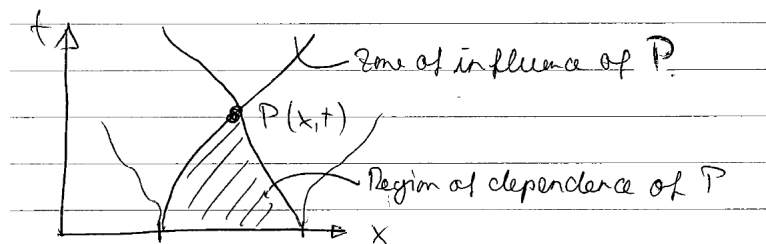 t
zone of influence of P.
P(x,t)
Region of dependence of P
x